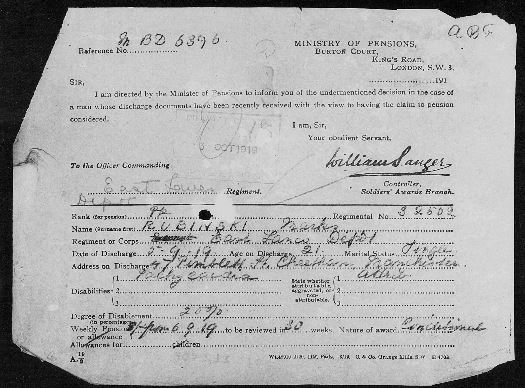 a 85
Reference No. M BD 6396
MINISTRY OF PENSIONS,
BURTON COURT,
KING'S ROAD,
LONDON, S.W. 3.
191
SIR,
I am directed by the Minister of Pensions to inform you of the undermentioned decision in the case of
a man whose discharge documents have been recently received with the view to having the claim to pension
considered.
I am, Sir,
Your obedient Servant,
OCT 1919
William Sanger
To the Officer Commanding
Controller,
Soldiers' Awards Branch.
East Lancs Regiment.
Depot
Rank (for pension) Pte Regimental No.
Name (Surname first) RUBINSKI Mark
Regiment or Corps East Lancs Depot
Date of Discharge 5-9-19 Age on Discharge 21 Marital Status Single
Address on Discharge 47 St Cheetham Manchester
Disabilities
1
2
3
State whether attributable, aggravated, or non-attributable.
1 Attrib
2
3
Degree of Disablement 20%
(in percentage)
Weekly Pension from 6.9.19 to be reviewed in 30 weeks. Nature of award Conditional
or allowance
Allowances for children